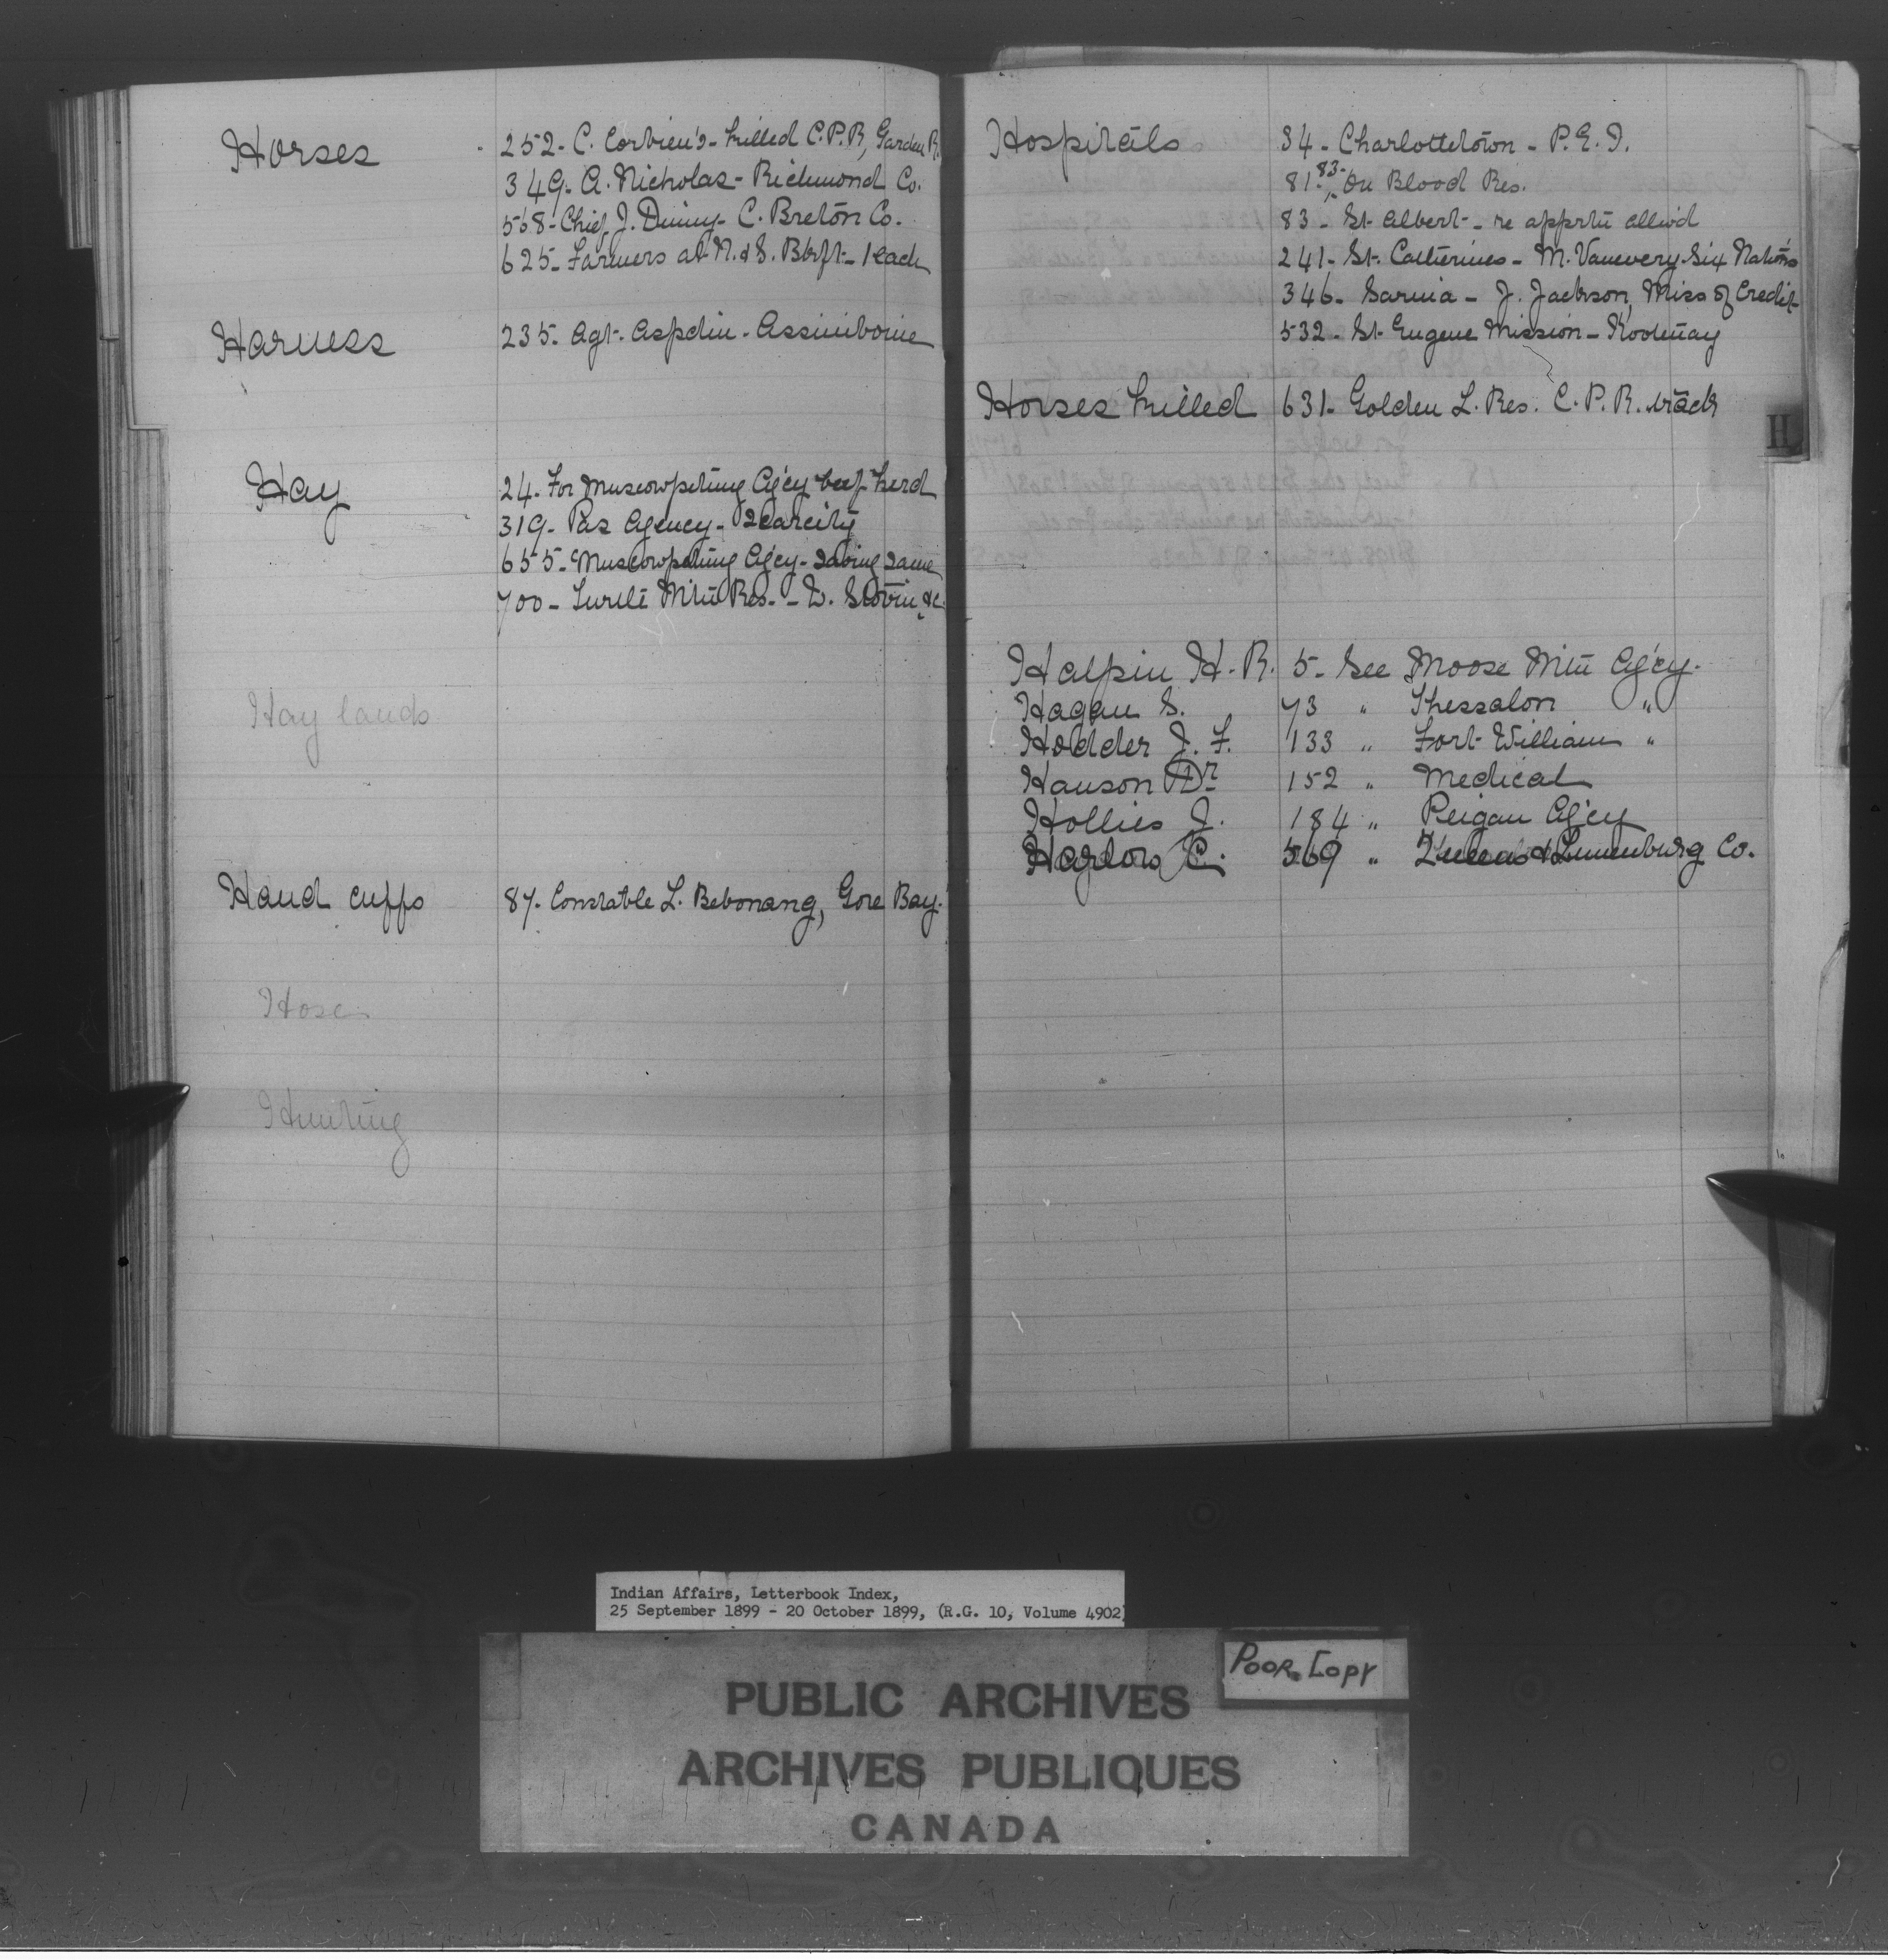 Horses
252- C. Corbiere's- killed C.P.R, Garden R.
349- A. Nicholas- Richmond Co.
568- Chief J. Denny- C. Breton Co.
625- Farmers at N. & S. Btlft- 1 each
Harness
235- Agt. Aspdin- Assiniboine
Hay
24- For Muscowpetung Ag'cy beef herd
319- Pas Agency- Scarcity
655- Muscowpetung Ag'cy- saving same
700- Turtle Mtn Res.-
Hay lands
Hand cuffs
87. Constable L. Bebonang, Gore Bay.
Hose
Hunting
Hospitals
34- Charlottetown- P.E.I.
81- 83- On Blood Res.
83- St. Albert- re apprtn allow'd
241- St. Catherines- M. Vanevery Six Nations
346- Sarnia- J. Jackson, Miss of Credit
532- St. Eugene Mission- Kootenay
Horses killed
631- Golden L. Res. C.P.R. track
H
Halpin H. R. 5- See Moose Mtn Ag'cy.
Hagan S. 73 " Thessalon "
Hodder J. F. 133 " Fort William "
Hanson Dr. 152 " Medical
Hollies J. 184 " Peigan Ag'cy
Harlow C. 569 " Queens & Lunenburg Co.
Indian Affairs, Letterbook Index,
25 September 1899 - 20 October 1899, (R.G. 10, Volume 4902)
POOR COPY
PUBLIC ARCHIVES
ARCHIVES PUBLIQUES
CANADA